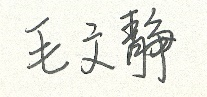 毛文静